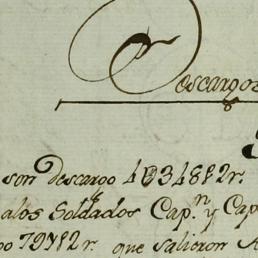 Descargos
son descargo 1034812r.
alos Soldados Cap.n y Cap
79712r. que salieron